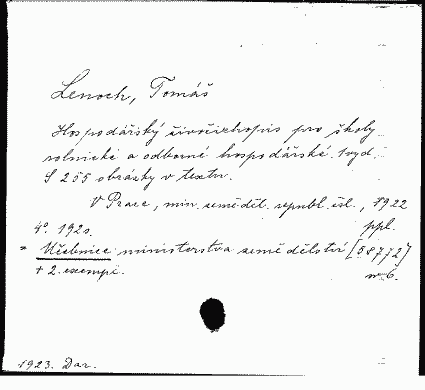 Lenoch, Tomáš
Hospodářský živočichopis pro školy
rolnické a odborné hospodářské. 1.vyd.
S 255 obrázky v textu.
V Praze, min. zeměděl. republ. čsl., 1922
4º. 192 s. ppl.
= Učebnice ministerstva zemědělství [58772]
+ 2. exempl.
1923. Dar.